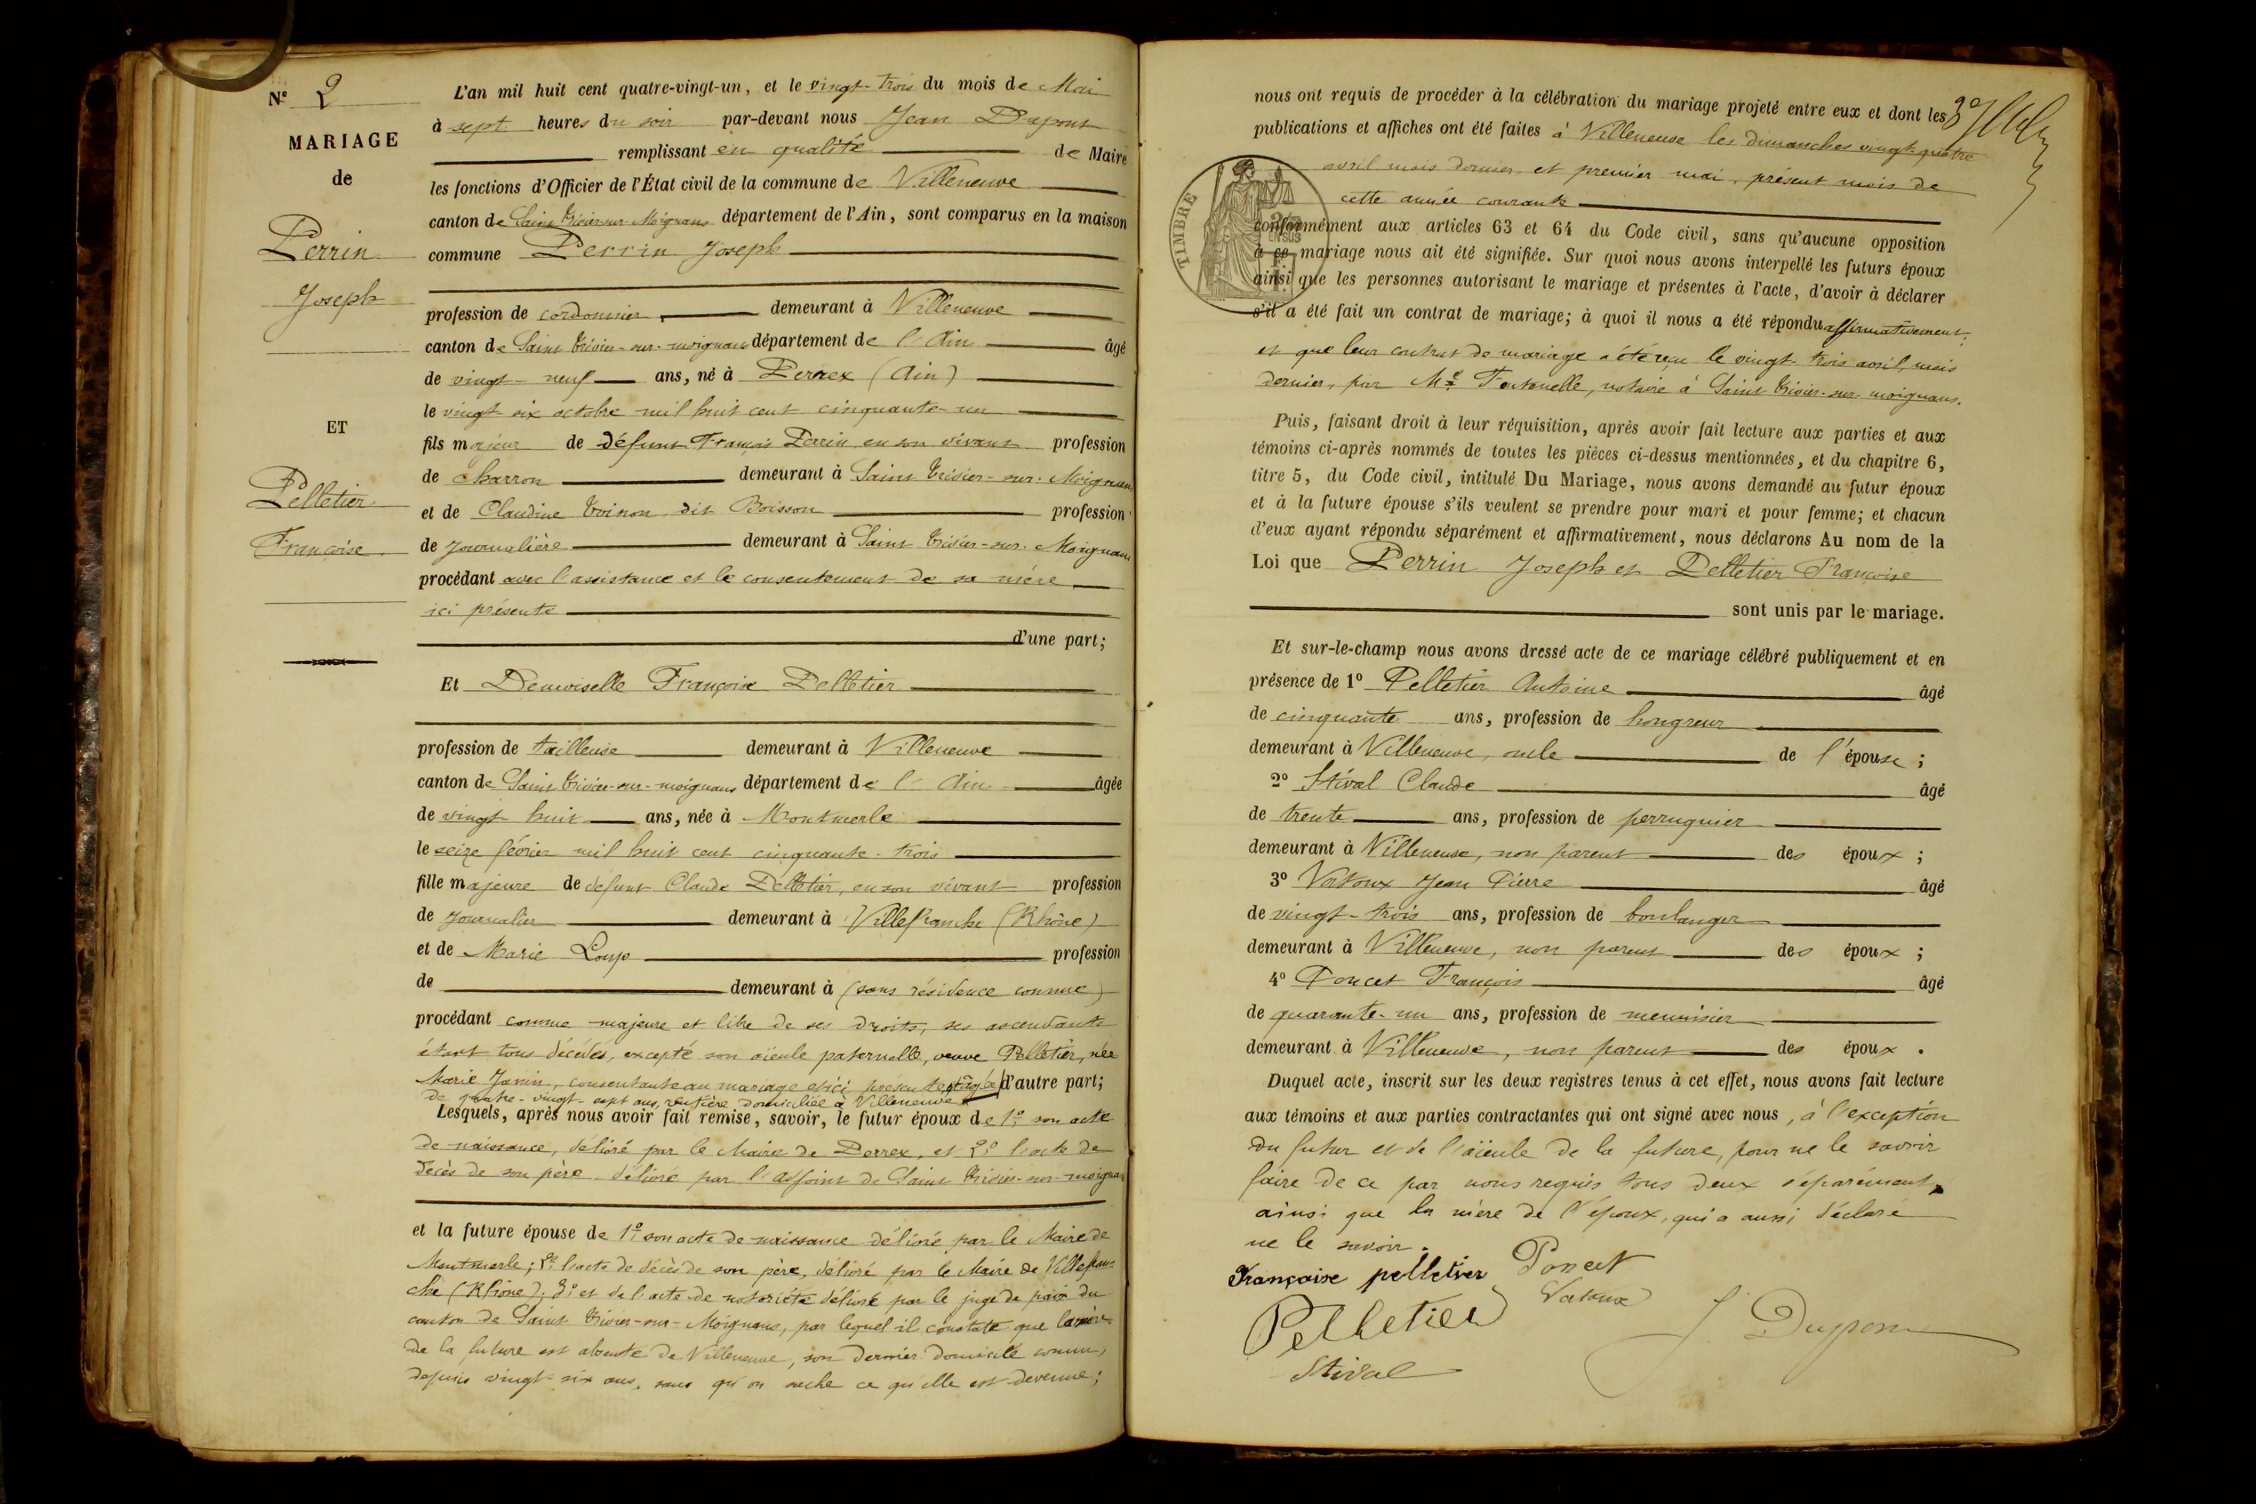 N° 2
MARIAGE
de
Perrin
Joseph
ET
Pelletier
Françoise
L'an mil huit cent quatre-vingt-un, et le vingt-trois du mois de Mai
à sept heures du soir par-devant nous Jean Dupont
remplissant en qualité de Maire
les fonctions d'Officier de l'État civil de la commune de Villeneuve
canton de Saint Trivier-sur-Moignans département de l'Ain, sont comparus en la maison
commune Perrin Joseph
profession de cordonnier demeurant à Villeneuve
canton de Saint Trivier-sur-moignans département de l'Ain âgé
de vingt-neuf ans, né à Perrex (Ain)
le vingt six octobre mil huit cent cinquante-un
fils majeur de défunt François Perrin en son vivant profession
de charron demeurant à Saint Trivier-sur-Moignans
et de Claudine Voinon dit Boisson profession
de journalière demeurant à Saint Trivier-sur-Moignans
procédant avec l'assistance et le consentement de sa mère
ici présente
d'une part;
Et Demoiselle Françoise Pelletier
profession de tailleuse demeurant à Villeneuve
canton de Saint Trivier-sur-moignans département de l'Ain âgée
de vingt huit ans, née à Montmerle
le seize février mil huit cent cinquante-trois
fille majeure de défunt Claude Pelletier, en son vivant profession
de journalier demeurant à Villefranche (Rhône)
et de Marie Loup profession
de demeurant à (sans résidence connue)
procédant comme majeure et libre de ses droits, ses ascendants
étant tous décédés, excepté son aïeule paternelle, veuve Pelletier, née
Marie Janin, consentante au mariage et ici présente, âgée d'autre part;
de quatre-vingt-sept ans, rentière domiciliée à Villeneuve
Lesquels, après nous avoir fait remise, savoir, le futur époux de 1° son acte
de naissance, délivré par le Maire de Perrex, et 2° l'acte de
décès de son père délivré par l'adjoint de Saint Trivier-sur-moignans
et la future épouse de 1° son acte de naissance délivré par le Maire de
Montmerle; 2° l'acte de décès de son père, délivré par le Maire de Villefran-
che (Rhône); 3° et de l'acte de notoriété délivré par le juge de paix du
canton de Saint Trivier-sur-Moignans, par lequel il constate que la mère
de la future est absente de Villeneuve, son dernier domicile connu,
depuis vingt-six ans, sans qu'on sache ce qu'elle est devenue;
nous ont requis de procéder à la célébration du mariage projeté entre eux et dont les
publications et affiches ont été faites à Villeneuve les dimanches vingt-quatre
avril mois dernier et premier mai, présent mois de
cette année courante
TIMBRE
conformément aux articles 63 et 64 du Code civil, sans qu'aucune opposition
à ce mariage nous ait été signifiée. Sur quoi nous avons interpellé les futurs époux
ainsi que les personnes autorisant le mariage et présentes à l'acte, d'avoir à déclarer
s'il a été fait un contrat de mariage; à quoi il nous a été répondu affirmativement,
et que leur contrat de mariage a été reçu le vingt-trois avril, mois
dernier, par Me Fontanelle, notaire à Saint Trivier-sur-moignans.
Puis, faisant droit à leur réquisition, après avoir fait lecture aux parties et aux
témoins ci-après nommés de toutes les pièces ci-dessus mentionnées, et du chapitre 6,
titre 5, du Code civil, intitulé Du Mariage, nous avons demandé au futur époux
et à la future épouse s'ils veulent se prendre pour mari et pour femme; et chacun
d'eux ayant répondu séparément et affirmativement, nous déclarons Au nom de la
Loi que Perrin Joseph et Pelletier Françoise
sont unis par le mariage.
Et sur-le-champ nous avons dressé acte de ce mariage célébré publiquement et en
présence de 1° Pelletier Antoine âgé
de cinquante ans, profession de hongreur
demeurant à Villeneuve, oncle de l'épouse;
2° Stival Claude âgé
de trente ans, profession de perruquier
demeurant à Villeneuve, non parent des époux;
3° Vatoux Jean Pierre âgé
de vingt-trois ans, profession de boulanger
demeurant à Villeneuve, non parent des époux;
4° Poncet François âgé
de quarante-un ans, profession de menuisier
demeurant à Villeneuve, non parent des époux.
Duquel acte, inscrit sur les deux registres tenus à cet effet, nous avons fait lecture
aux témoins et aux parties contractantes qui ont signé avec nous, à l'exception
du futur et de l'aïeule de la future, pour ne le savoir
faire de ce par nous requis tous deux séparément,
ainsi que la mère de l'époux, qui a aussi déclaré
ne le savoir.
Françoise pelletier Poncet
Vatoux
Pelletier J Dupont
Stival